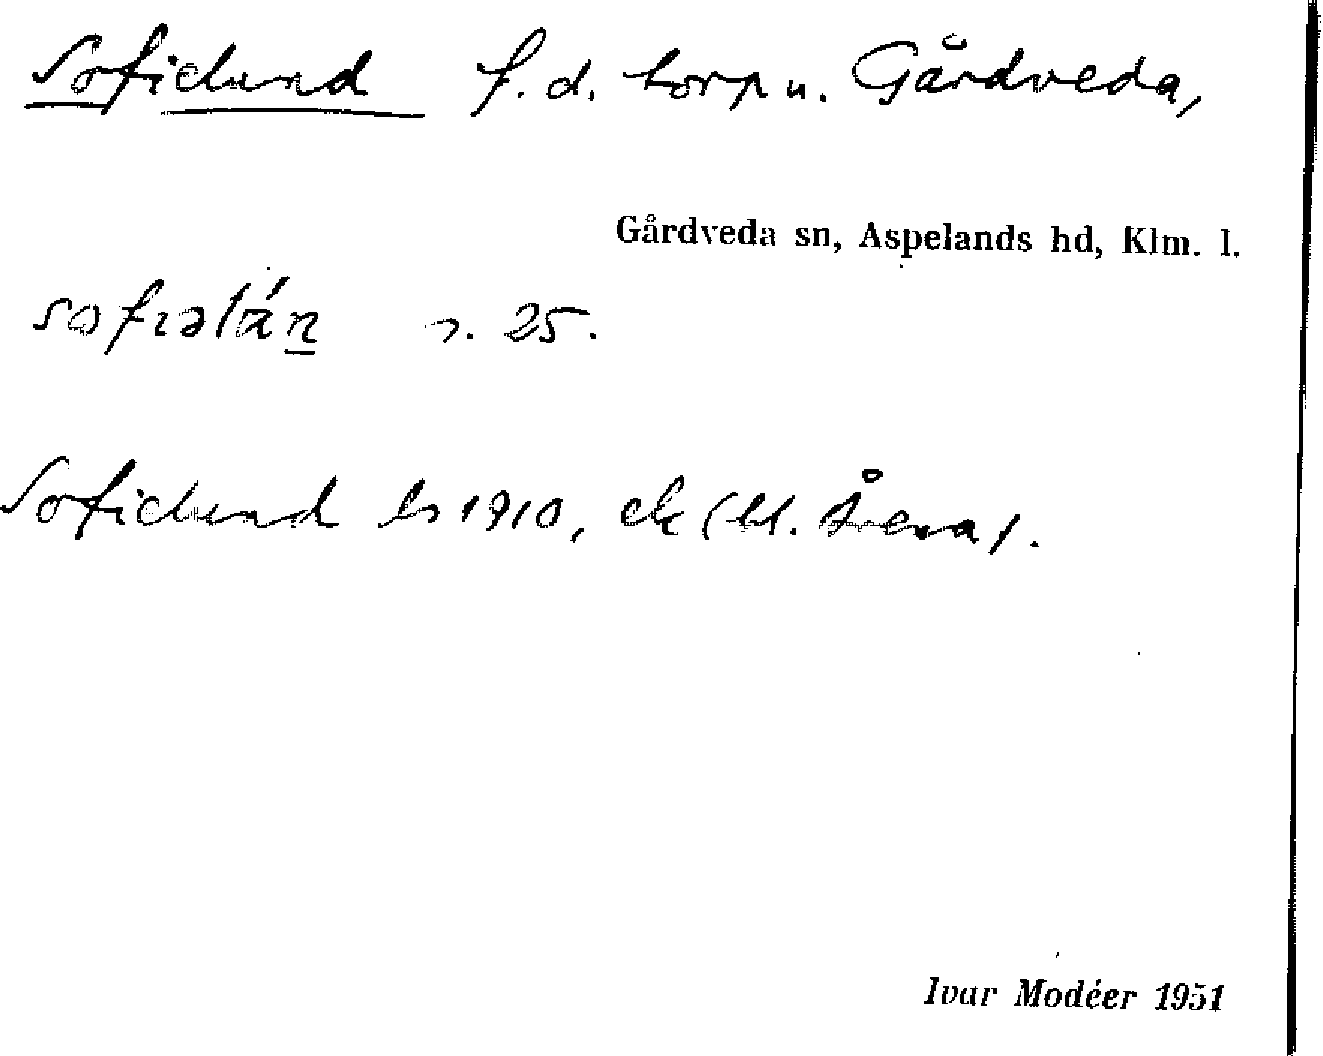 Sofielund f.d. torp u. Gårdveda,
Gårdveda sn, Aspelands hd, Klm. l.
s. 25.
Sofielund 1910, ek (bl.
Ivar Modéer 1951